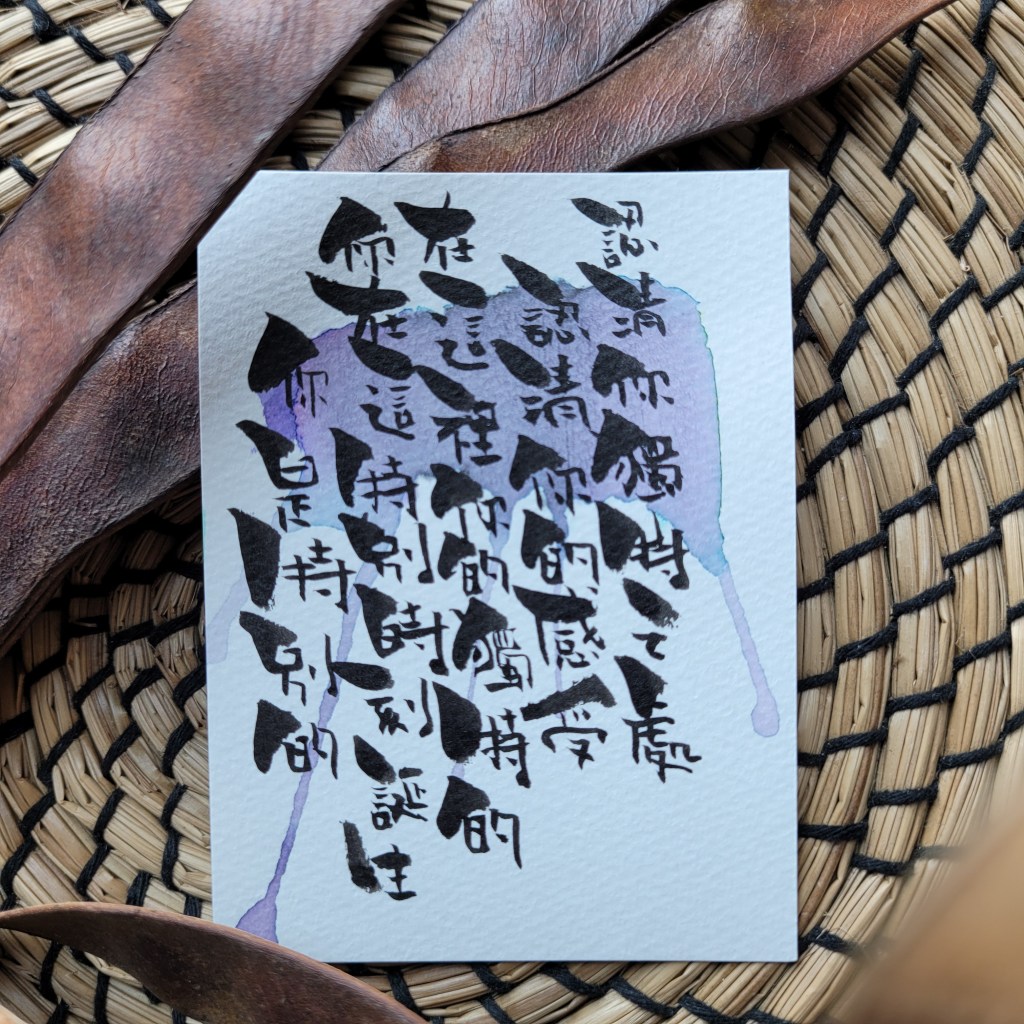 認清你獨特之處
認清你的感受
在這裡你的獨特的
你在這特別時刻誕生
你是特別的